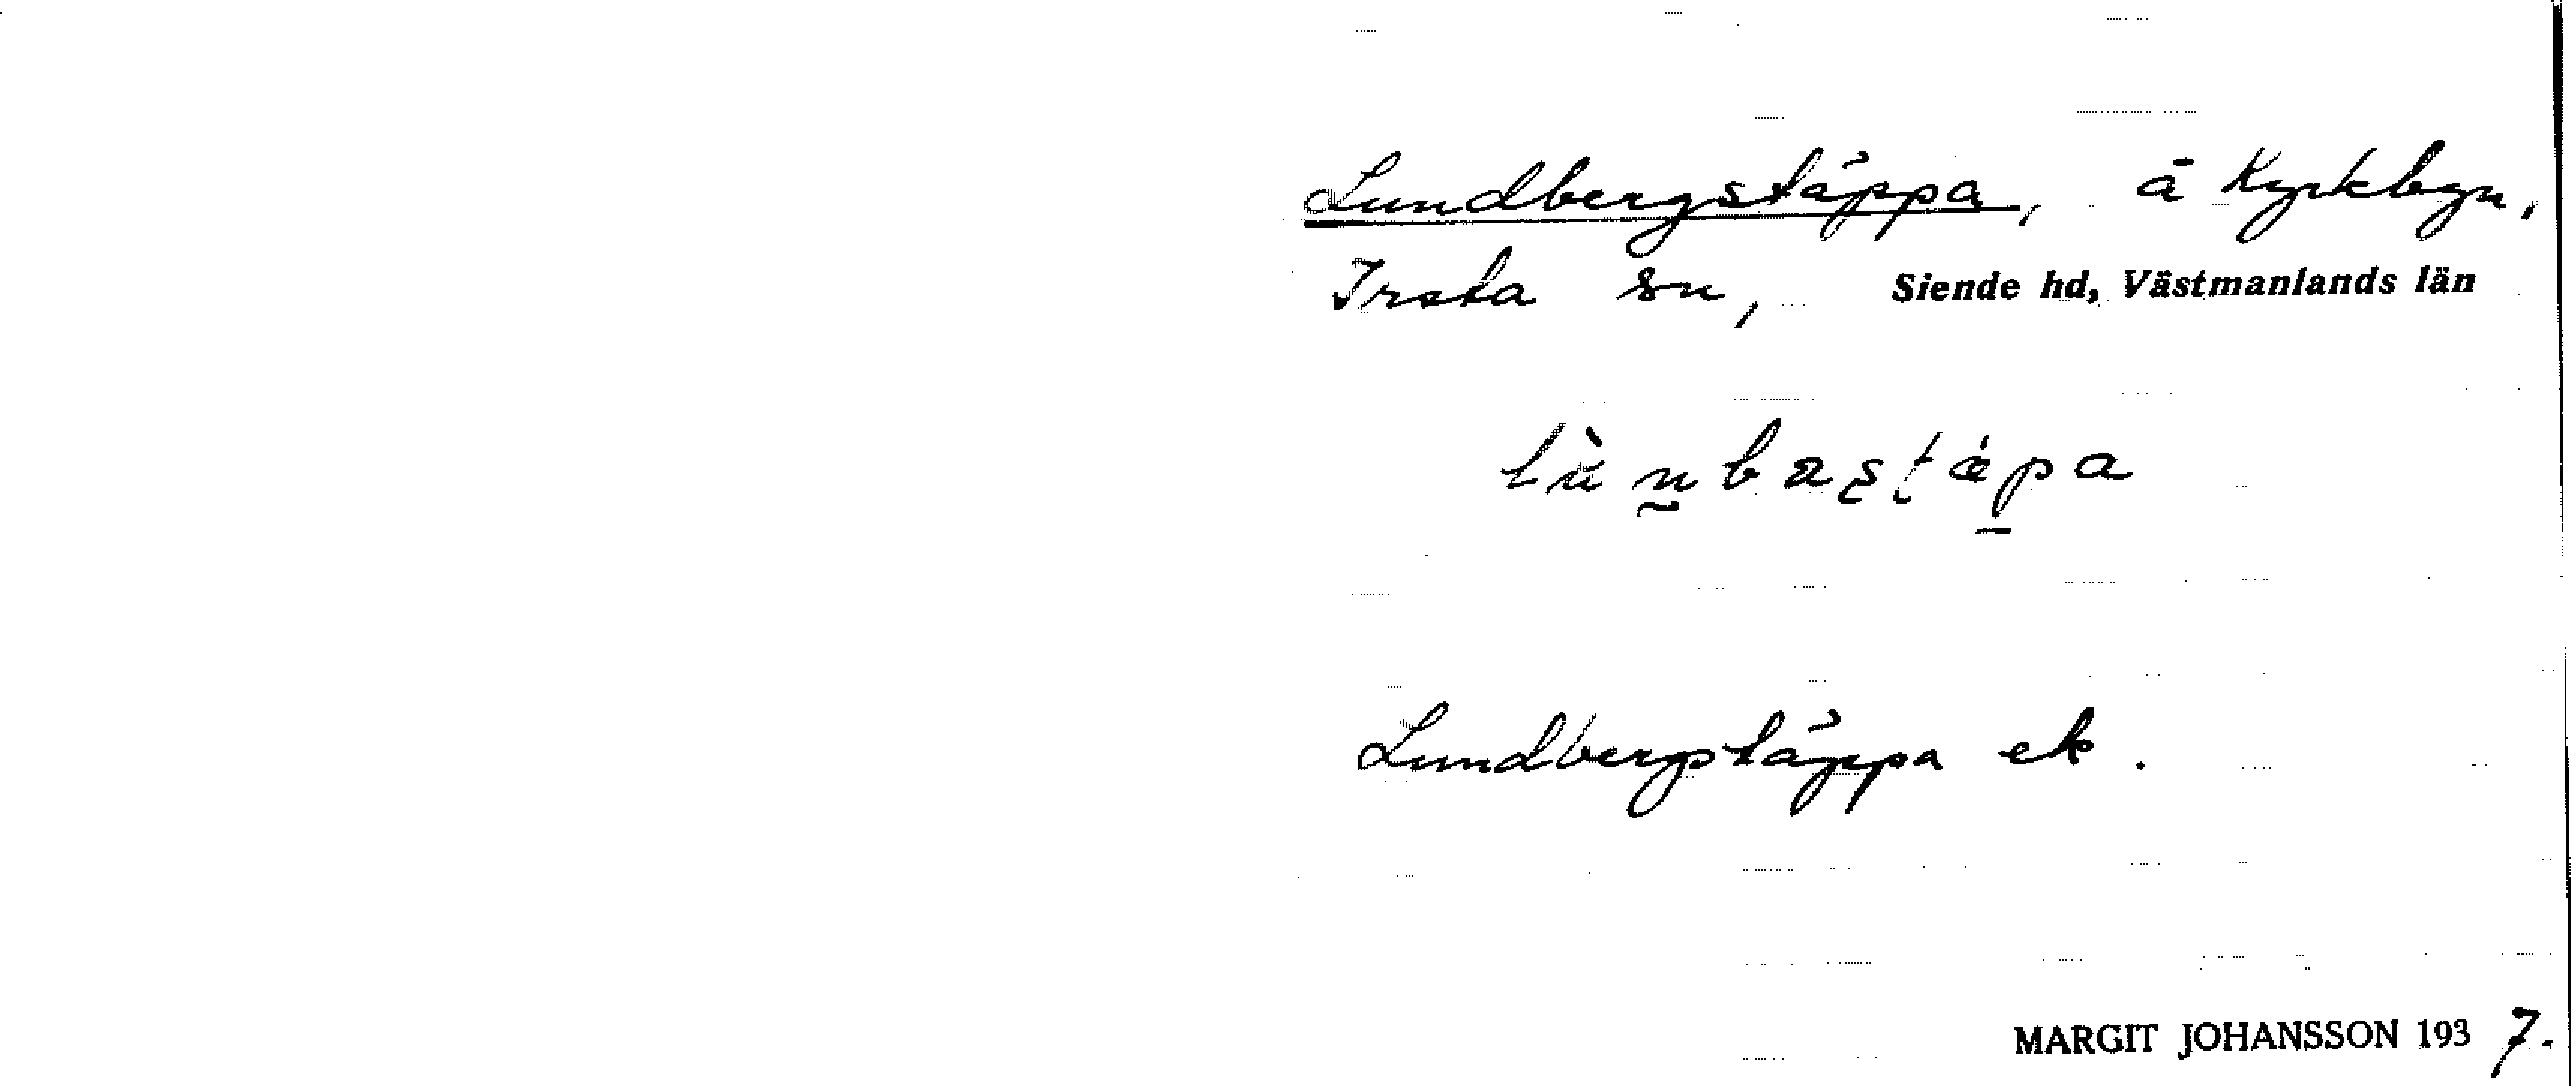 Lundbergstäppa, å Kyrkbyn,
Irsta sn, Siende hd, Västmanlands län
Lundbergstäppa ek.
MARGIT JOHANSSON 1937.